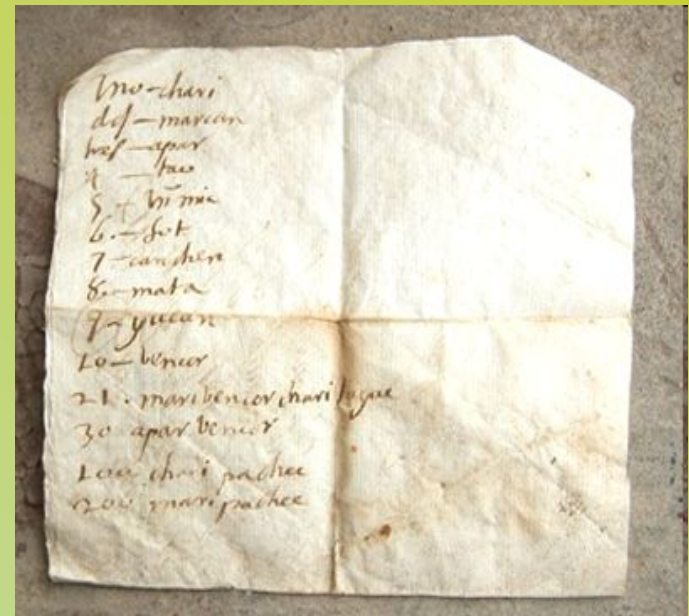 Uno - chari
dos - marian
tres - apar
4 - tau
5 - himic
6. - sut
7 - canchen
8. - mata
9 - yucan
10 - bencor
21. maribencor chari tayac
30 apar bencor
100 chari pachac
200 mari pachac